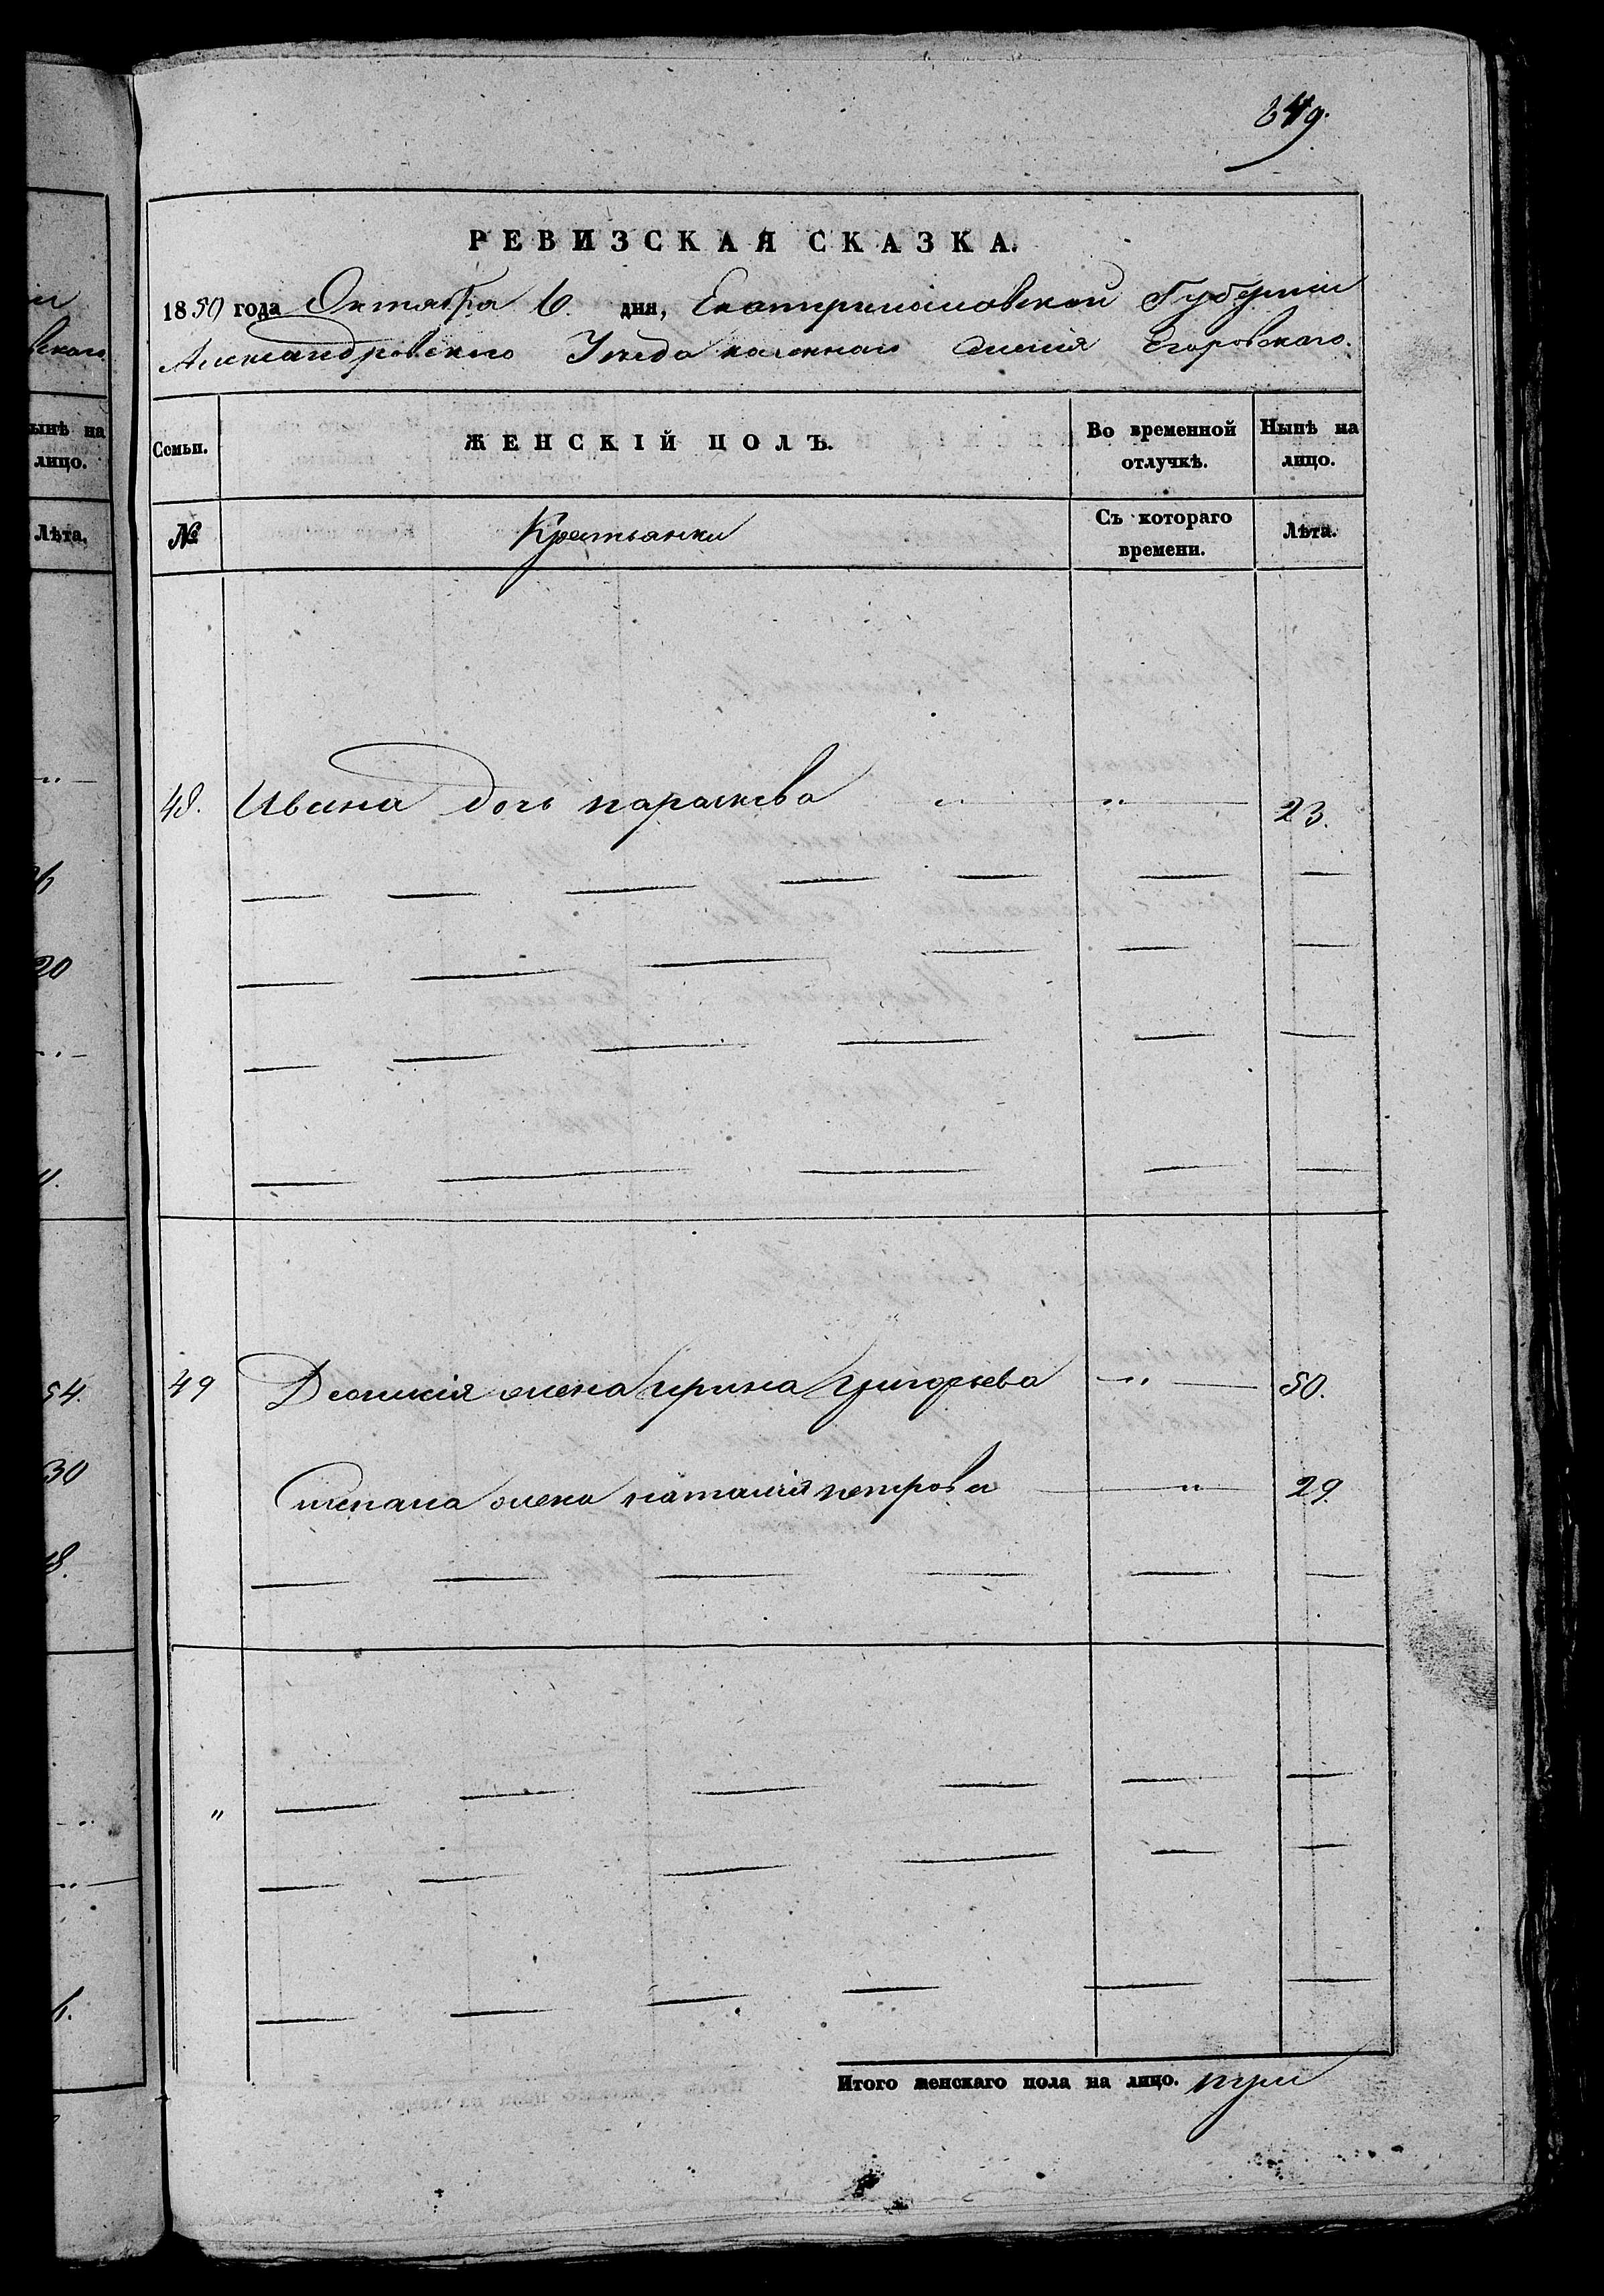 849.
РЕВИЗСКАЯ СКАЗКА.
1850 года Октября 6. дня, Екатеринославской Губернии
Александровского Уезда казенного Селения Егоровского.
Семьи. ЖЕНСКІЙ ПОЛЪ. Во временной отлучкѣ. Нынѣ на лицо.
№ Крестьянки Съ котораго времени. Лѣта.
48. Ивана дочь парасковва " " 23.
49 Деонисія жена ирина григорьева " 50.
Степана жена наталия петрова " 29.
"
Итого женскаго пола на лицо. три
ынѣ на
лицо.
Лѣта.
20
54.
30